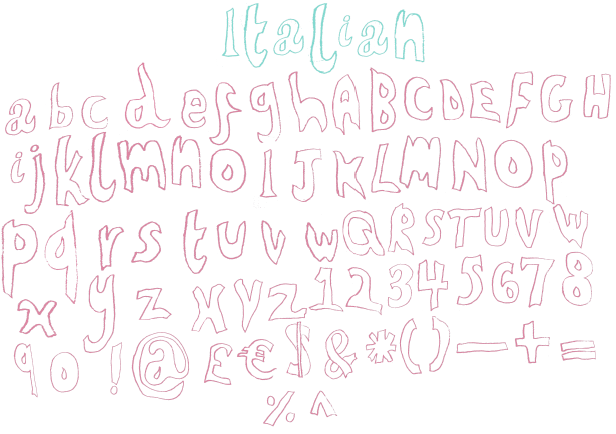 Italian
a b c d e f g h A B C D E F G H
i j k l m n o I J K L M N O P
p q r s t u v w Q R S T U V W
x y z X Y Z 1 2 3 4 5 6 7 8
9 0 ! @ £ € $ & * ( ) — + =
% ^